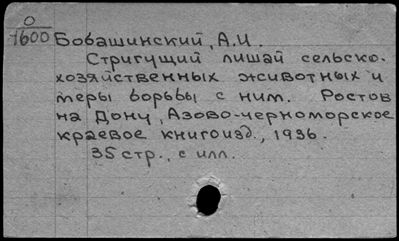 О
1600
Бобашинский, А.И.
Стригущий лишай сельско-
хозяйственных животных и
меры борьбы с ним. Ростов
на Дону, Азово-черноморское
краевое книгоизд., 1936.
35 стр., с илл.